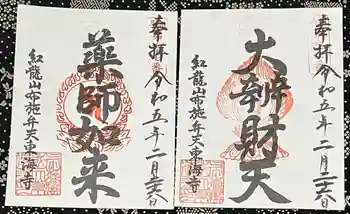 奉拝
令和五年二月二六日
大辨財天
紅龍山布施弁天東海寺
奉拝
令和五年二月二六日
薬師如来
紅龍山布施弁天東海寺